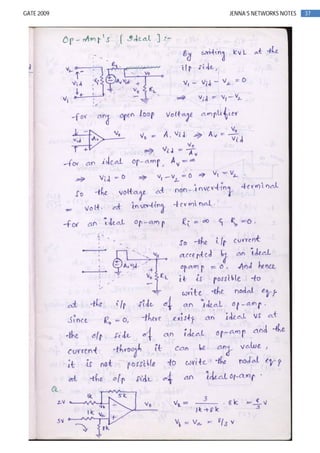 GATE 2009
JENNA'S NETWORKS NOTES
37
Op-Amp's [Ideal] :-
By writing KVL at the
i/p side,
V₁ - Vid - V₂ = 0
⇒ Vid = V₁ - V₂
-for any open loop voltage amplifier
V₀ = Aᵥ Vid ⇒ Aᵥ = V₀/Vid
⇒ Vid = V₀/Aᵥ
-for an ideal op-amp, Aᵥ = ∞
⇒ Vid = 0 ⇒ V₁ - V₂ = 0 ⇒ V₁ = V₂
So the voltage at non-inverting terminal
= volt. at inverting terminal.
-for an ideal op-amp Ri = ∞ & R₀ = 0.
So the i/p current
accepted by an ideal
opamp = 0. And hence
it is possible to
write the nodal eq.
at the i/p side of an ideal op-amp.
Since R₀ = 0, there exists an ideal vs at
the o/p side of an ideal op-amp and the
current through it can be any value,
it is not possible to write the nodal eq.
at the o/p side of an ideal op-amp.
Q.
1k
5k
2V
V₀
1k
5V
8k